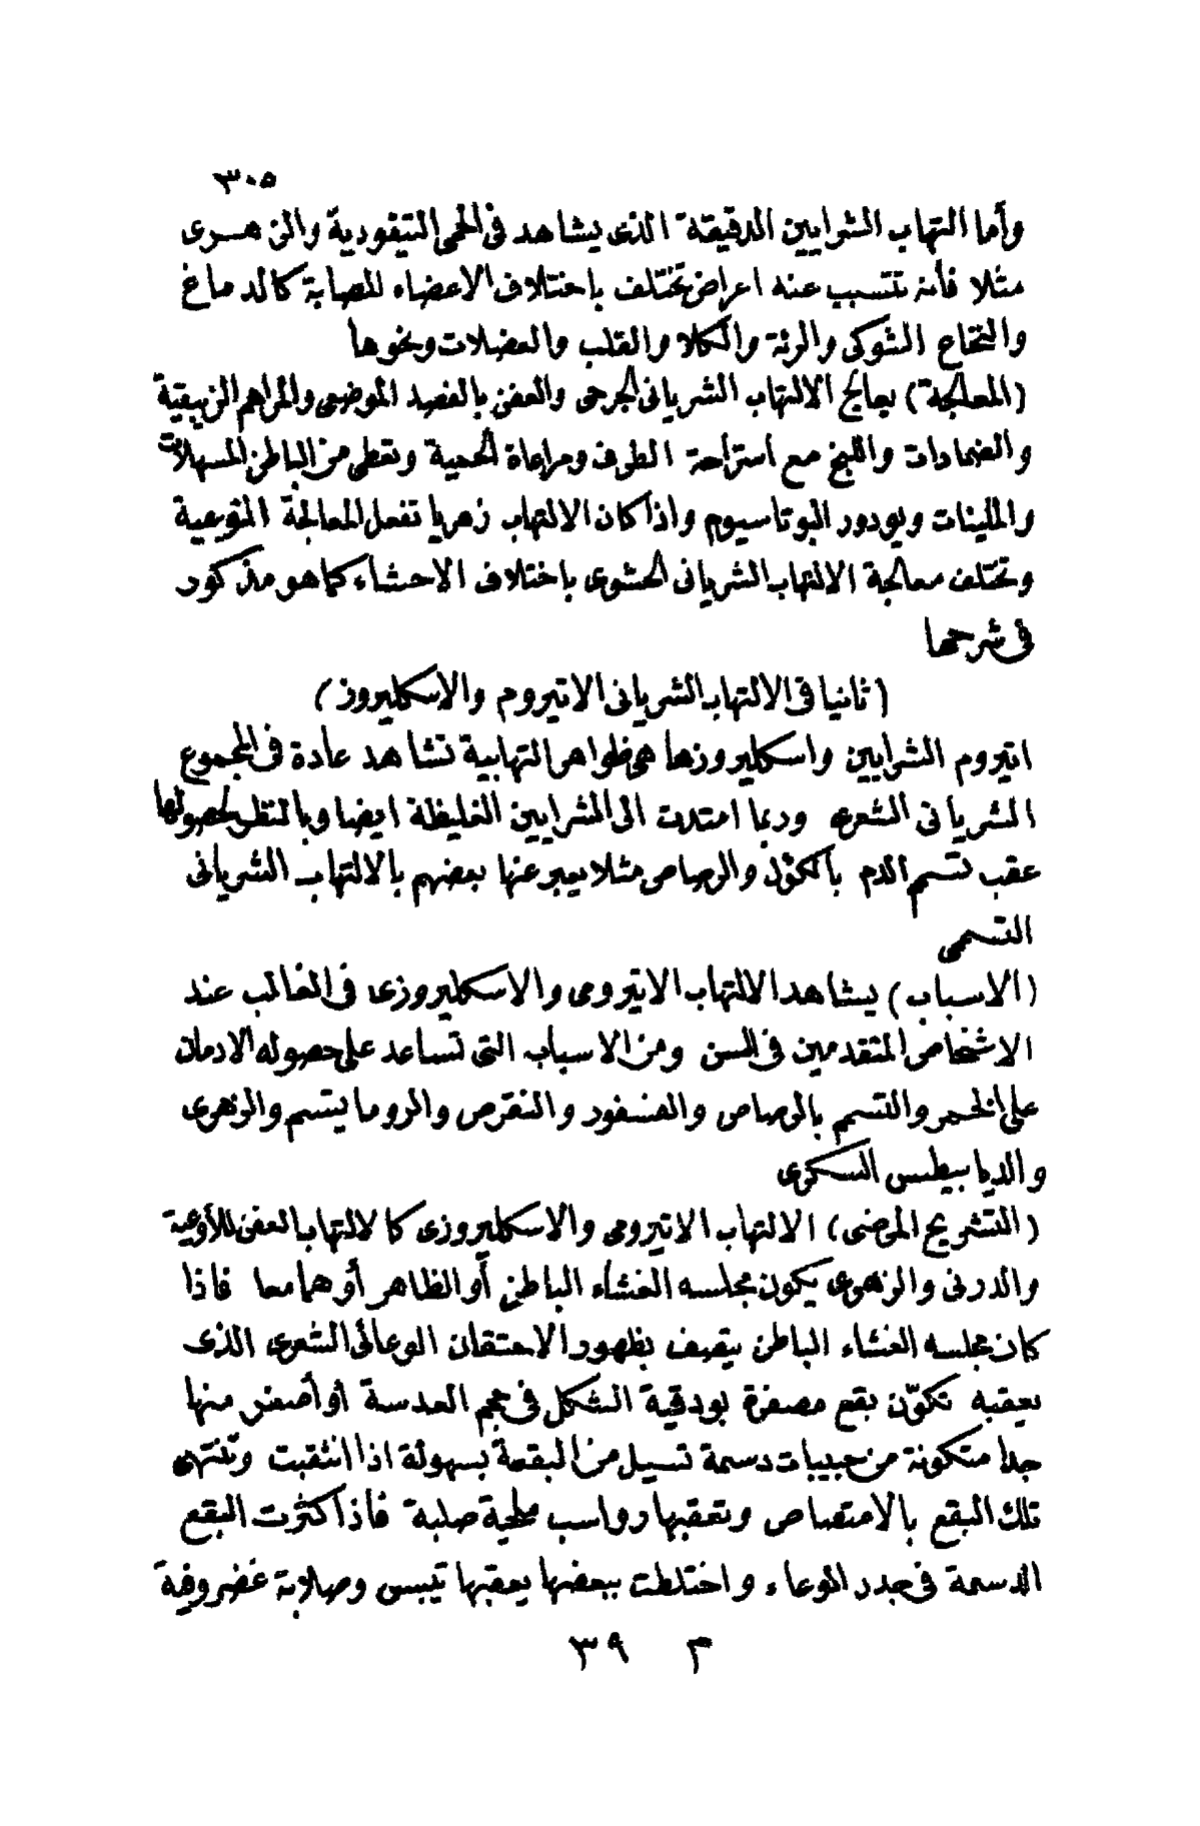 ٣٠٥
وأما التهاب الشرايين الدقيقة الذى يشاهد فى الحمى التيفودية والزهرى
مثلا فأنه تتسبب عنه اعراض تختلف باختلاف الاعضاء المصابة كالدماغ
والنخاع الشوكى والرئة والكلا والقلب والعضلات ونحوها
(المعالجة) يعالج الالتهاب الشريانى الجرحى والعفن بالفصد الموضعى والمراهم الزيبقية
والضمادات واللبخ مع استراحة الطرف ومراعاة الحمية وتعطى من الباطن المسهلات
والملينات ويودور البوتاسيوم واذا كان الالتهاب زهريا تفعل المعالجة النوعية
وتختلف معالجة الالتهاب الشريانى الحشوى باختلاف الاحشاء كما هو مذكور
فى شرحها
(ثانيا فى الالتهاب الشريانى الاتيروم والاسكليروز)
اتيروم الشرايين واسكليروزها هى ظواهر التهابية تشاهد عادة فى المجموع
الشريانى الشعرى وربما امتدت الى الشرايين الغليظة ايضا وبالنظر لحصولها
عقب تسمم الدم بالكؤل والرصاص مثلا يعبر عنها بعضهم بالالتهاب الشريانى
التسممى
(الاسباب) يشاهد الالتهاب الاتيرومى والاسكليروزى فى الغالب عند
الاشخاص المتقدمين فى السن ومن الاسباب التى تساعد على حصوله الادمان
على الخمر والتسمم بالرصاص والفسفور والنقرص والروماتيسم والزهرى
والديابيطس السكرى
(التشريح المرضى) الالتهاب الاتيرومى والاسكليروزى كالالتهاب العفن للأوعية
والدرنى والزهرى يكون مجلسه الغشاء الباطن أو الظاهر أو هما معا فاذا
كان مجلسه الغشاء الباطن يتصف بظهور الاحتقان الوعائى الشعرى الذى
يعقبه تكوّن بقع مصفرة بودقية الشكل فى حجم العدسة أو أصغر منها
جدا متكونة من حبيبات دسمة تسيل من البقعة بسهولة اذا انثقبت وتنتهى
تلك البقع بالامتصاص وتعقبها رواسب ملحية صلبة فاذا كثرت البقع
الدسمة فى جدر الوعاء واختلطت ببعضها يعقبها تيبس وصلابة غضروفية
م ٣٩